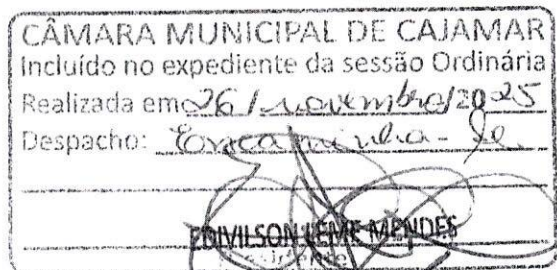 CÂMARA MUNICIPAL DE CAJAMAR
Incluído no expediente da sessão Ordinária
Realizada em 26 / novembro/2025
Despacho: Encaminha-se
EDIVILSON LEME MENDES
Presidente